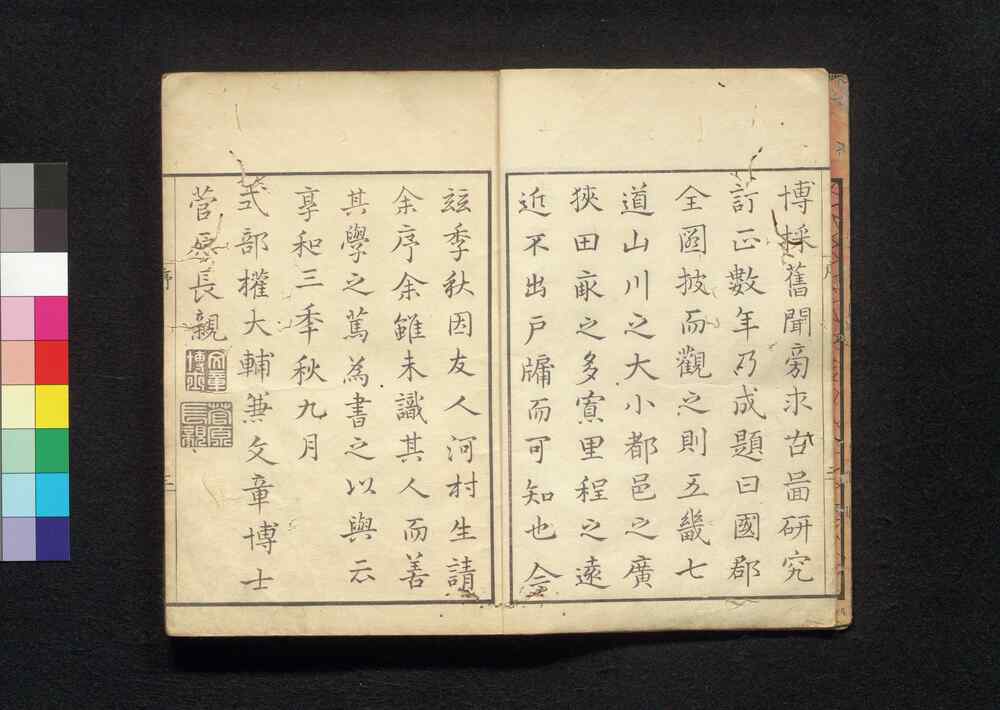 博採舊聞旁求古啚研究
訂正數年乃成題曰國郡
全圖披而觀之則五畿七
道山川之大小都邑之廣
狹田畝之多寡里程之遠
近不出戶牖而可知也今
玆季秋因友人河村生請
余序余雖未識其人而善
其學之篤為書之以與云
享和三季秋九月
式部權大輔兼文章博士
菅原長親
文章博士
菅原長親
序
三